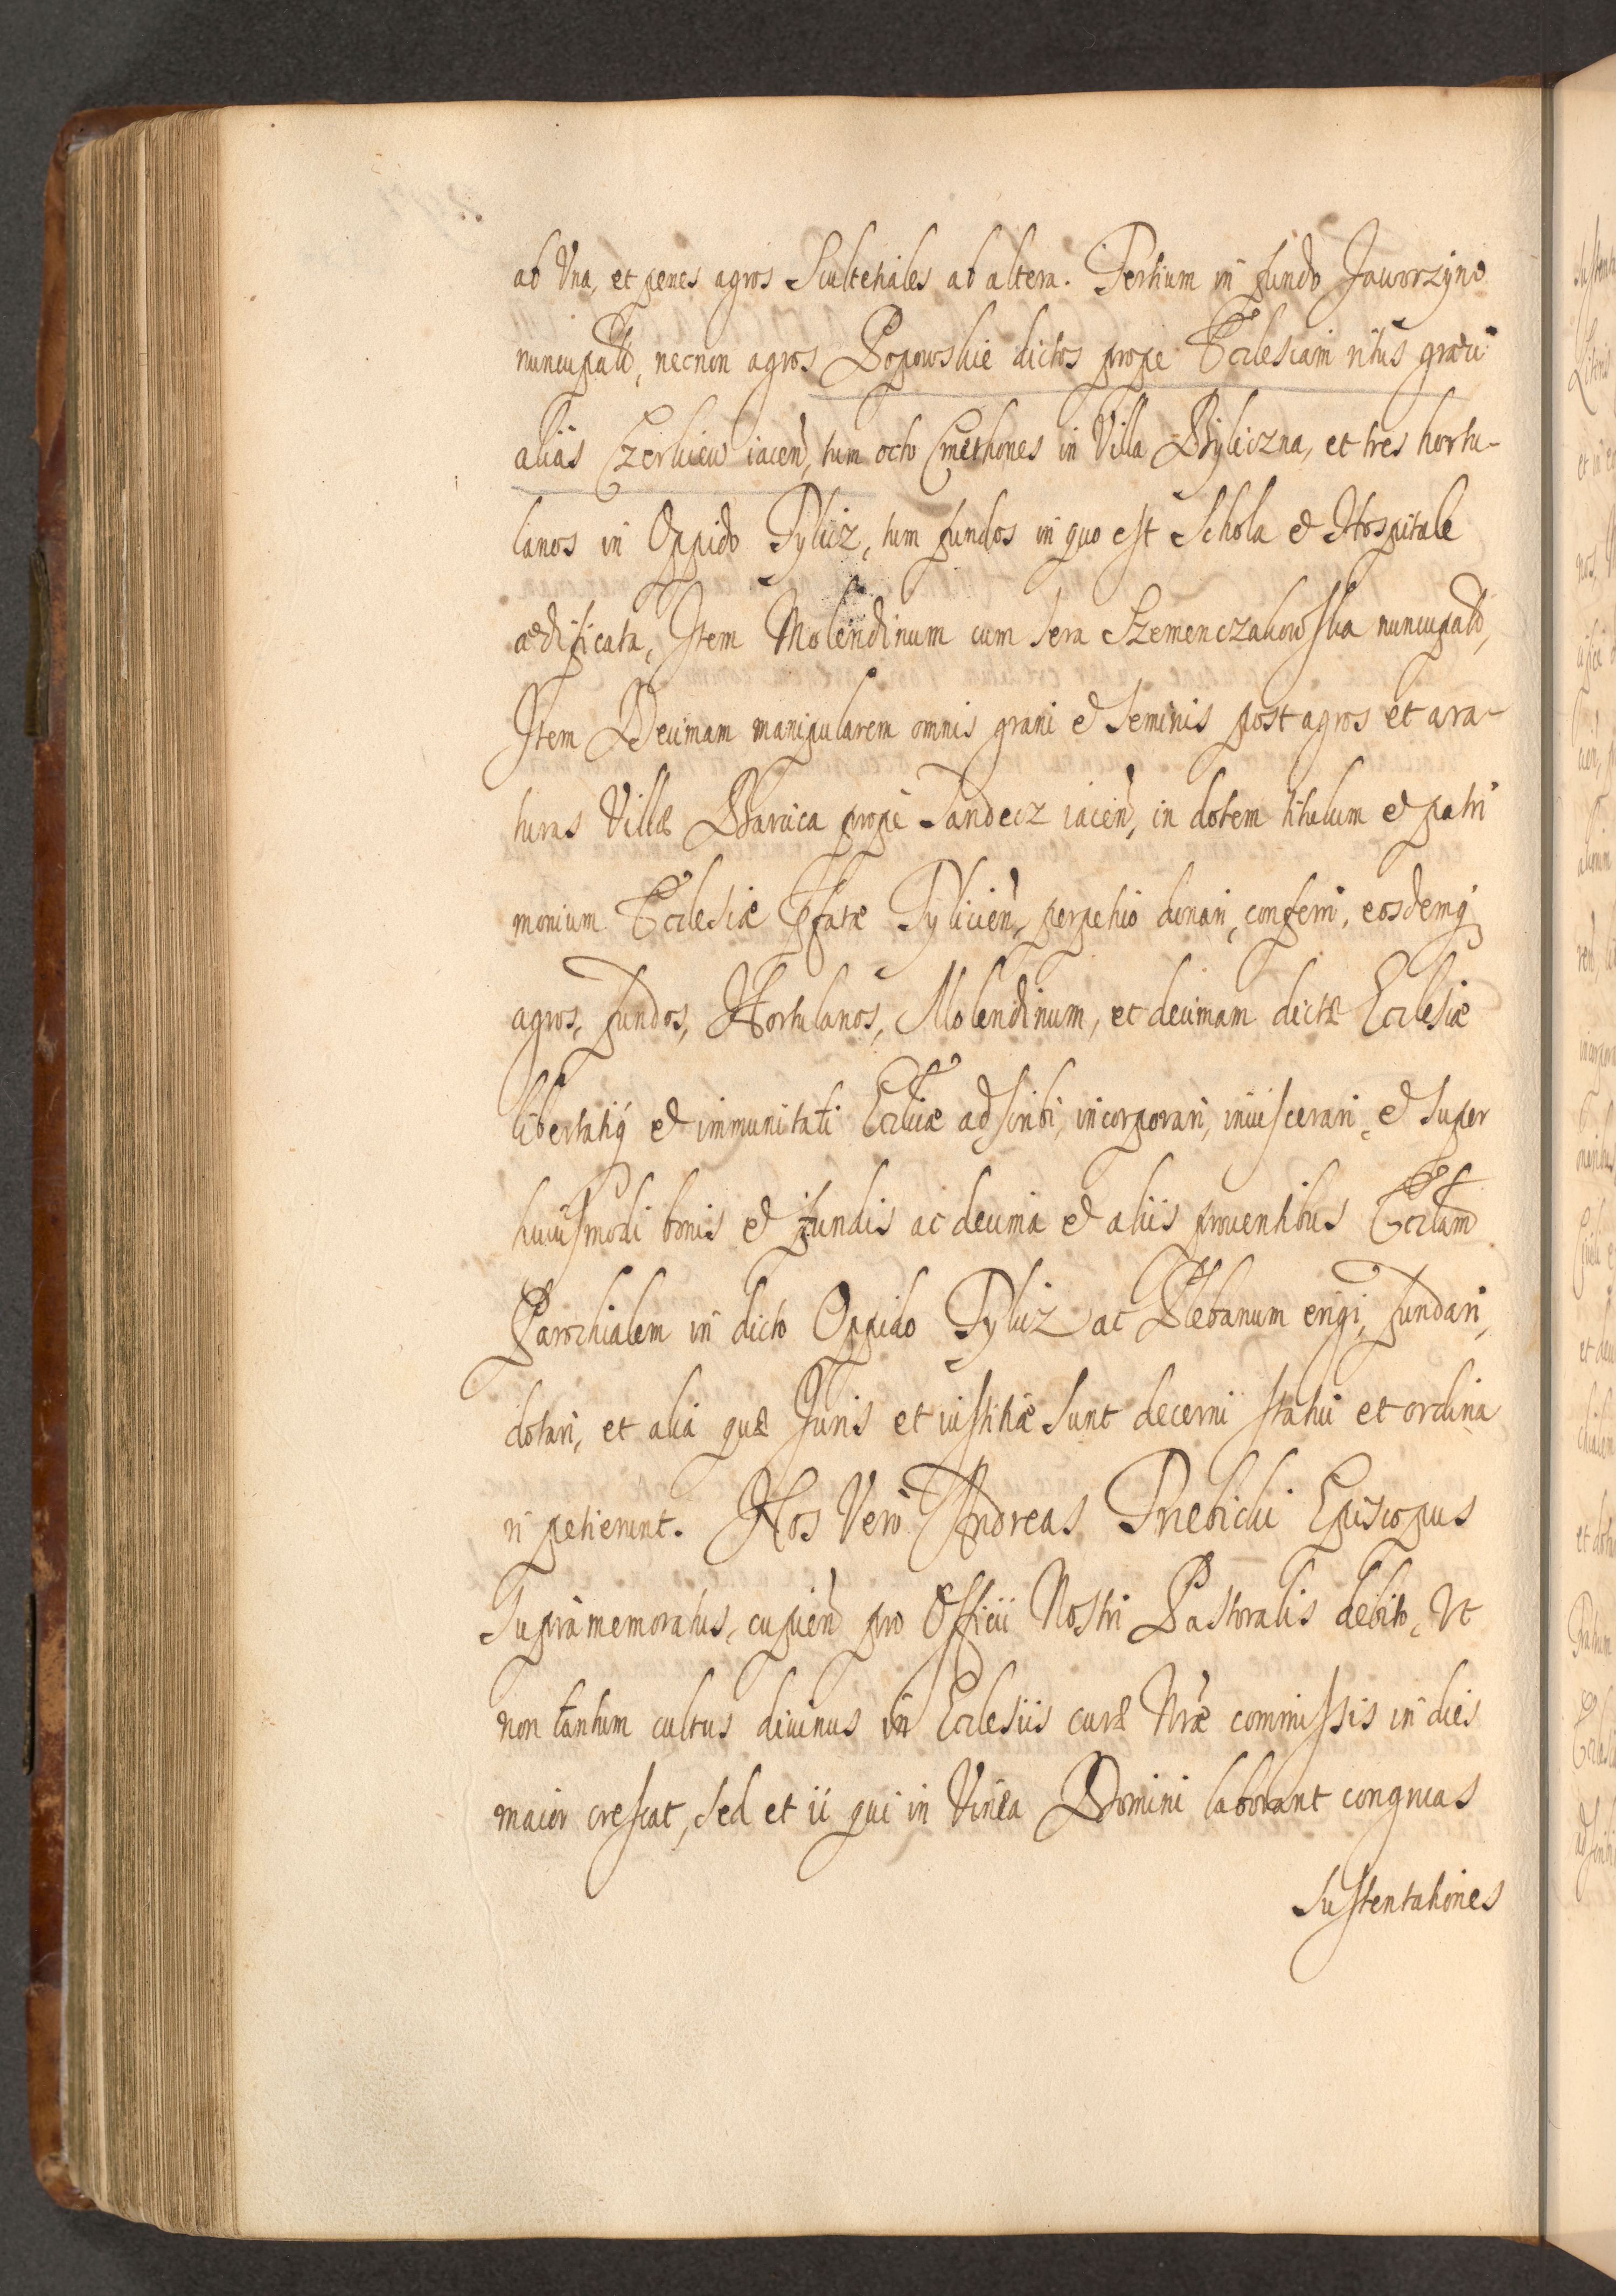 ab Vna, et penes agros Scultetiales ab altera. Tertium in fundo Jaworzyne
nuncupatū, necnon agros Popowskie dictos prope Ecclesiam ritus græci
aliàs Czerkiew iacen̄, tum octo Cmethones in Villa Byliczna, et tres hortu-
lanos in Oppido Tylicz, tum fundos in quo est Schola & Hospitale
ædificata, Item Molendinum cum sera Szemenczakowska nuncupatō,
Item Decimam manipularem omnis grani & Seminis post agros et ara-
turas Villæ Barcica prope Sandecz iacen̄, in dotem titulum & patri
monium Ecclesiæ Pfatæ Tylicien̄, perpetuo donari, conferri, eosdemq
agros, fundos, Hortulanos, Molendinum, et decimam dictæ Ecclesiæ
libertatiq & immunitati Ecclicæ adscribi, incorporari, inuiscerari, & super
huiusmodi bonis & fundis ac decima & aliis prouentibus Ecclam
Parochialem in dicto Oppido Tylicz ac Plebanum erigi, fundari,
dotari, et alia quæ Juris et iustitiæ sunt decerni statui et ordina
ri petierunt. Nos Vero Andreas Trzebicki Episcopus
Supramemoratus, cupien̄ pro Officii Nostri Pastoralis debito, Vt
non tantum cultus diuinus in Ecclesiis curæ Nræ commissis in dies
maior crescat, sed et ii qui in Vinea Domini laborant congruas
Sustentationes